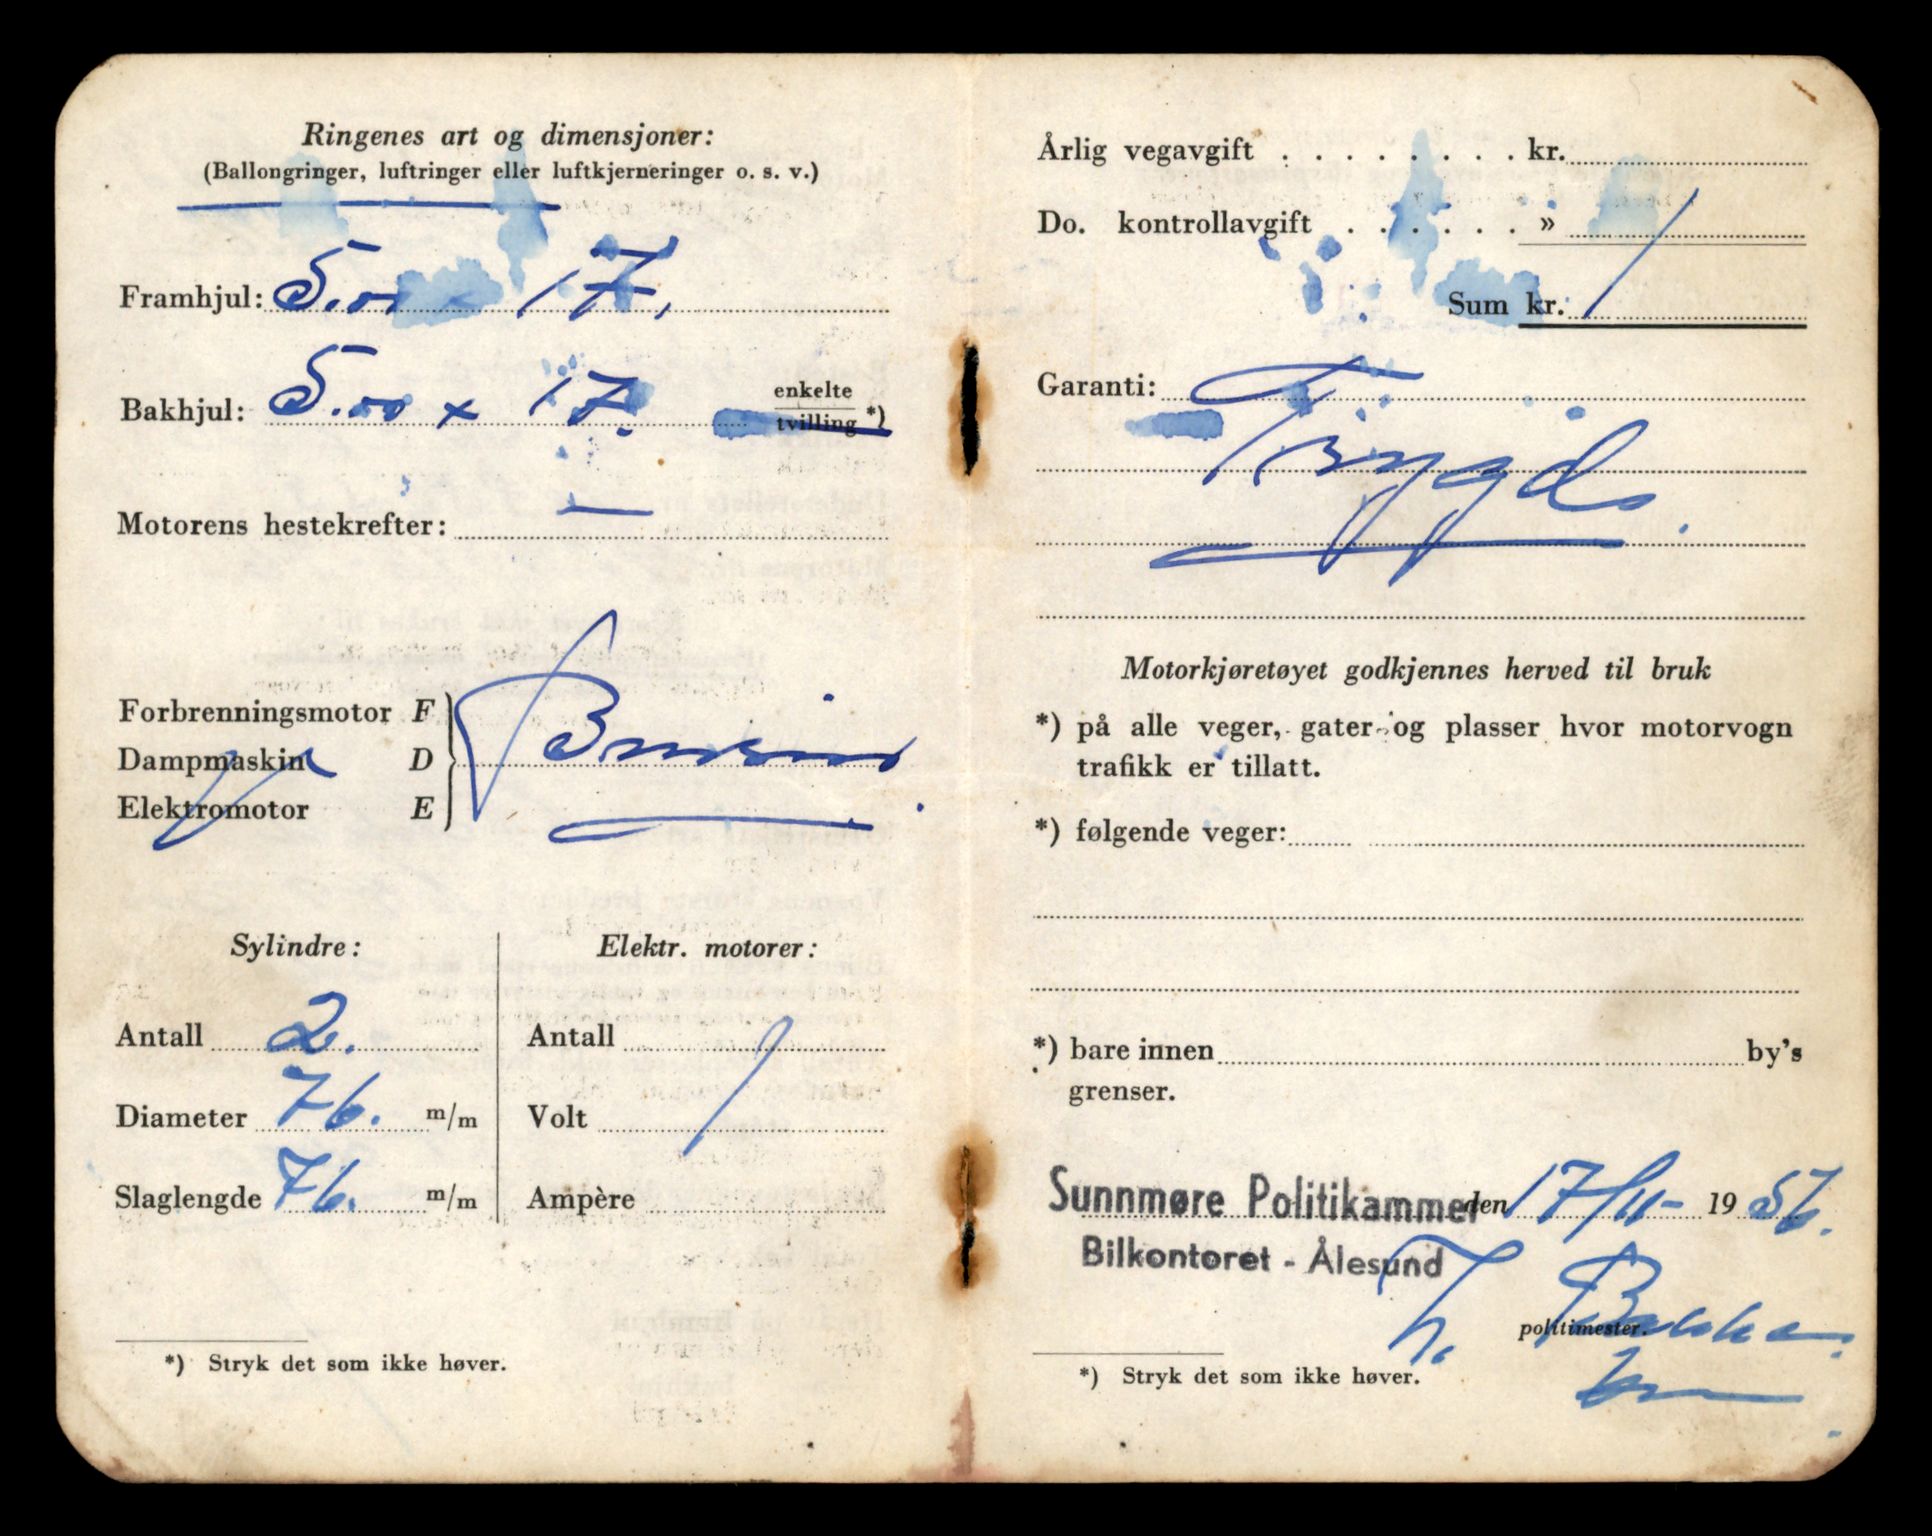 Ringenes art og dimensjoner:
(Ballongringer, luftringer eller luftkjerneringer o. s. v.)
Framhjul: 5.00 x 17.
Bakhjul: 5.00 x 17. enkelte
tvilling *)
Motorens hestekrefter: —
Forbrenningsmotor F
Dampmaskin D
Elektromotor E
Sylindre:
Antall 2.
Diameter 76. m/m
Slaglengde 76. m/m
Elektr. motorer:
Antall
Volt
Ampère
*) Stryk det som ikke høver.
Årlig vegavgift . . . . . . . . kr.
Do. kontrollavgift . . . . . . »
Sum kr.
Garanti:
Trygd.
Motorkjøretøyet godkjennes herved til bruk
*) på alle veger, gater og plasser hvor motorvogn
trafikk er tillatt.
*) følgende veger:
*) bare innen by's
grenser.
Sunnmøre Politikammer den 17/11- 1956.
Bilkontoret - Ålesund
politimester.
*) Stryk det som ikke høver.